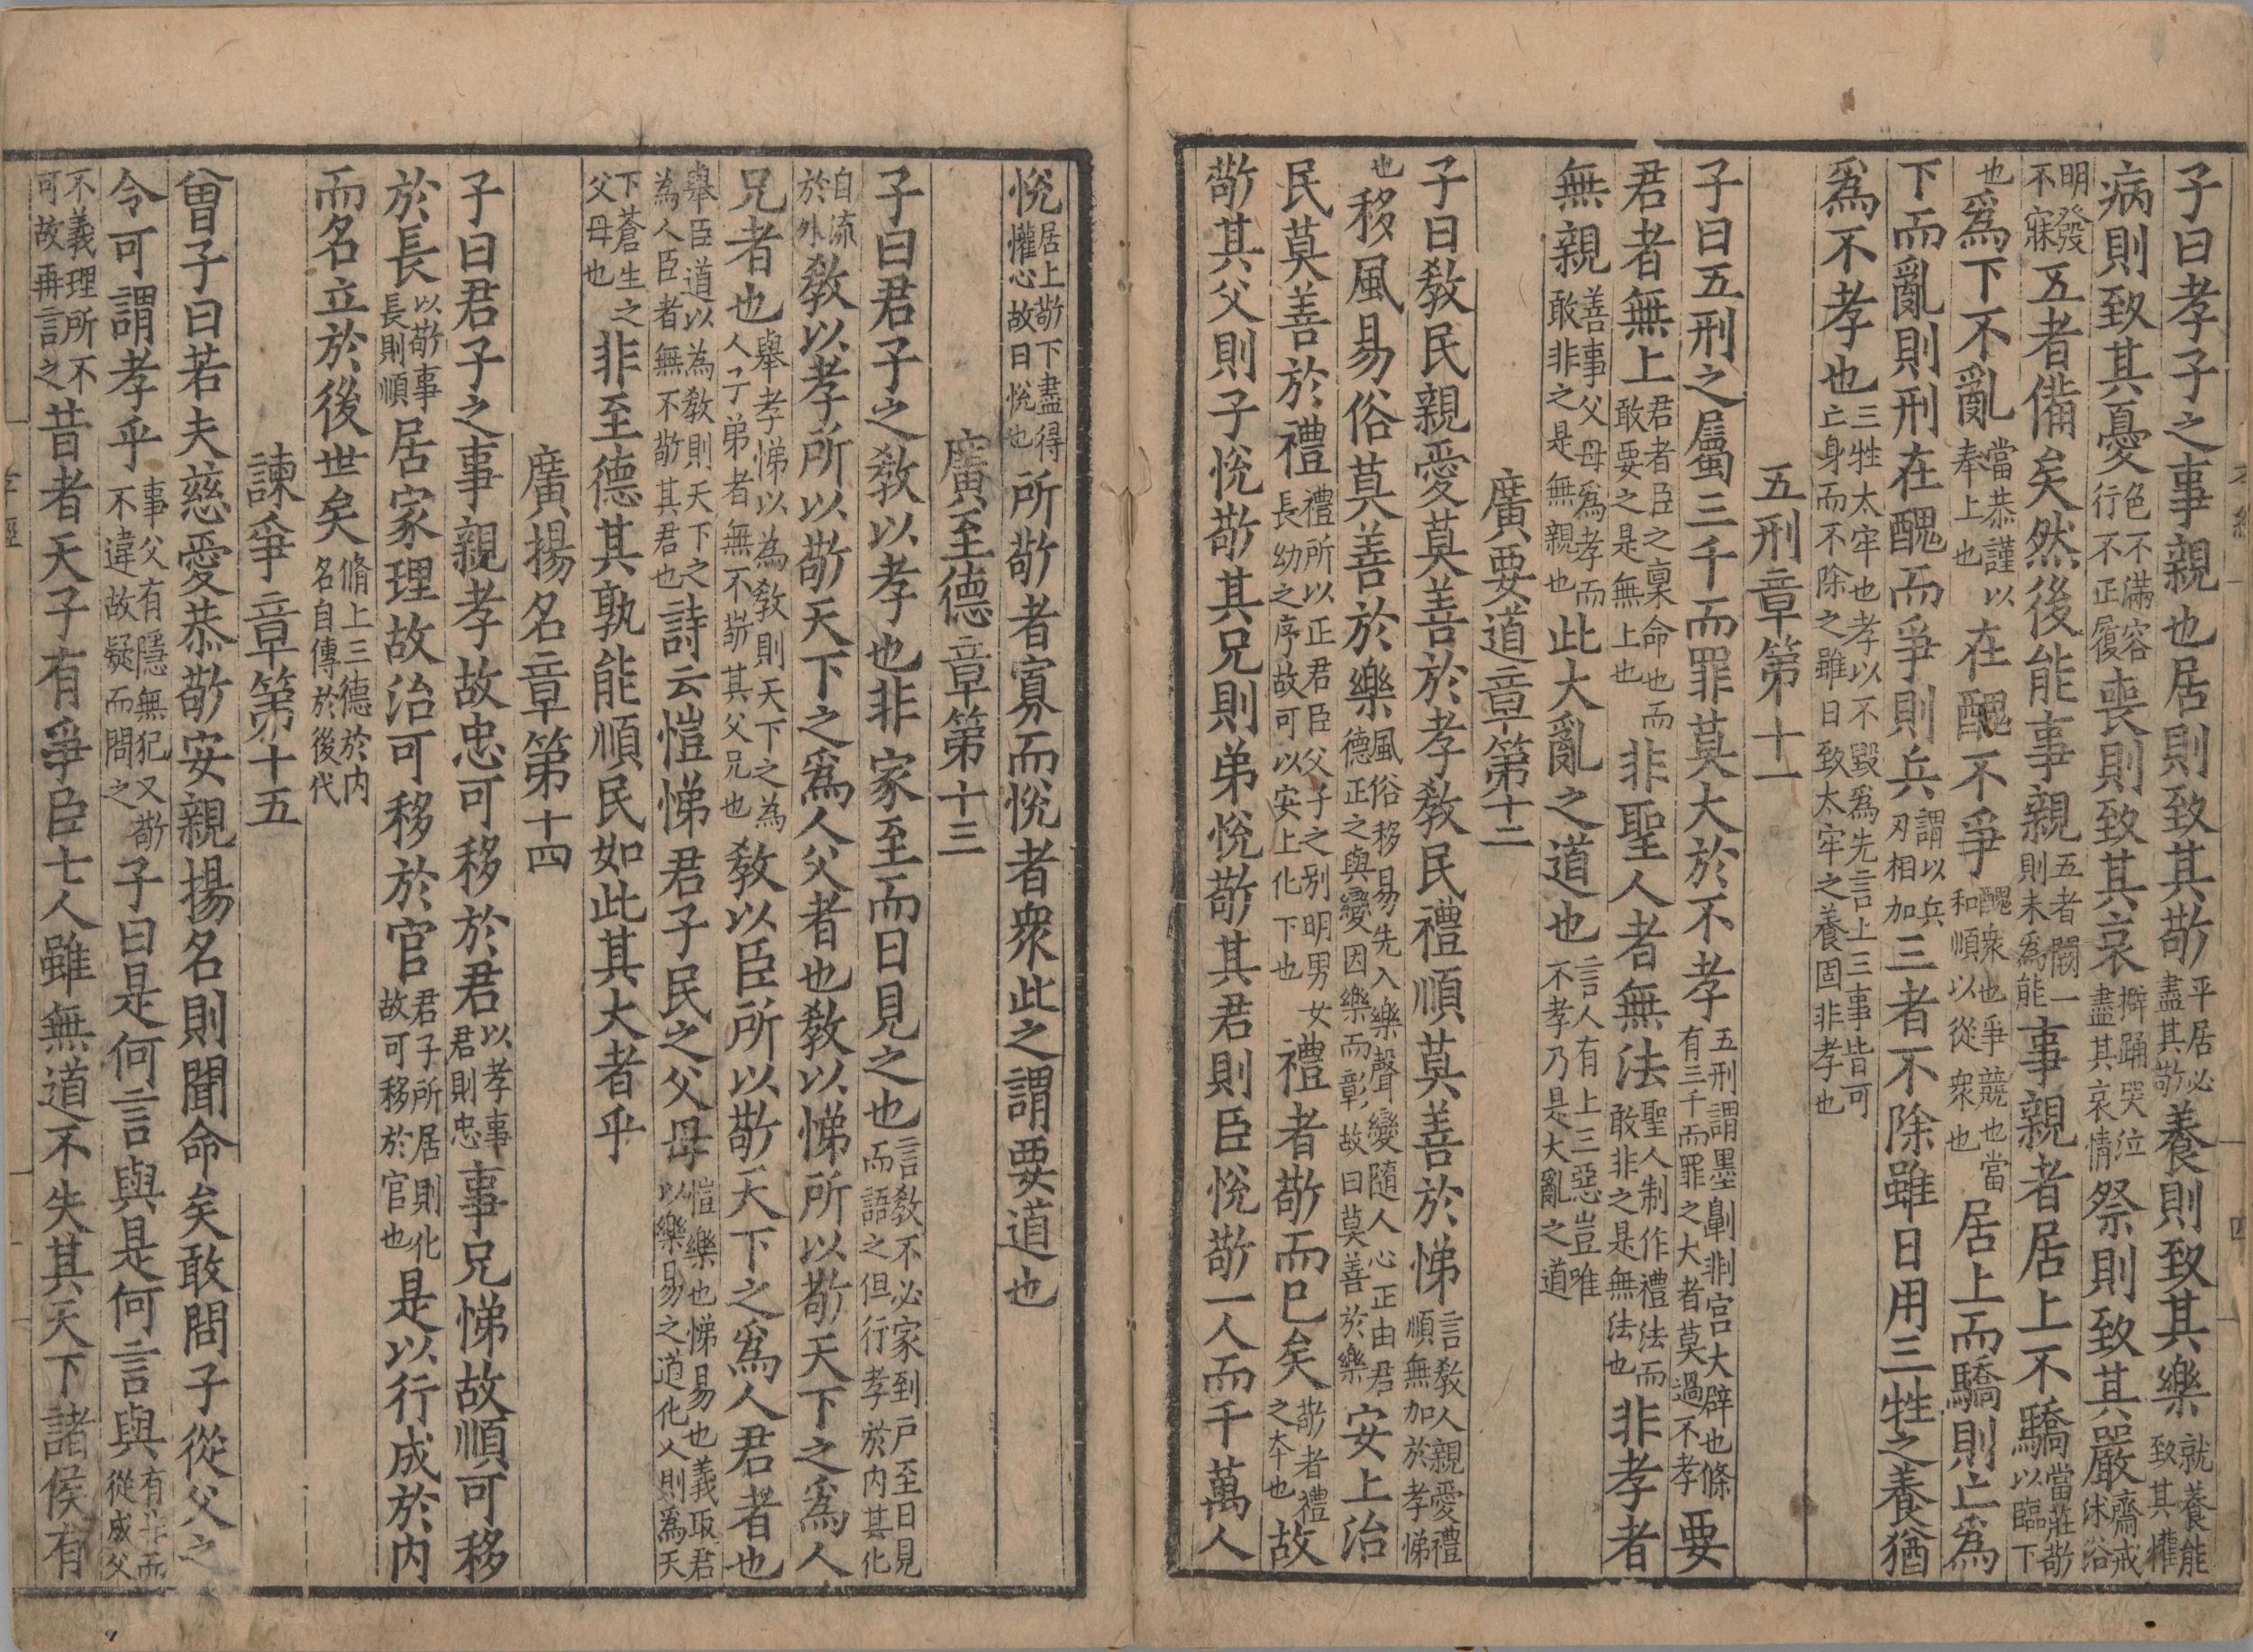 子曰孝子之事親也居則致其敬平居必盡其敬養則致其樂就養能致其懽
病則致其憂色不滿容行不正履喪則致其哀擗踊哭泣盡其哀情祭則致其嚴齋戒沐浴
明發不寐五者備矣然後能事親五者闕一則未爲能事親者居上不驕當莊敬以臨下
也爲下不亂當恭謹以奉上也在醜不爭醜衆也爭競也當和順以從衆也居上而驕則亡爲
下而亂則刑在醜而爭則兵謂以兵刃相加三者不除雖日用三牲之養猶
爲不孝也三牲太牢也孝以不毀爲先言上三事皆可亡身而不除之雖日致太牢之養固非孝也
五刑章第十一
子曰五刑之屬三千而罪莫大於不孝五刑謂墨劓剕宮大辟也條有三千而罪之大者莫過不孝要
君者無上君者臣之稟命也而敢要之是無上也非聖人者無法聖人制作禮法而敢非之是無法也非孝者
無親善事父母爲孝而敢非之是無親也此大亂之道也言人有上三惡豈唯不孝乃是大亂之道
廣要道章第十二
子曰敎民親愛莫善於孝敎民禮順莫善於悌言敎人親愛禮順無加於孝悌
也移風易俗莫善於樂風俗移易先入樂聲變隨人心正由君德正之與變因樂而彰故曰莫善於樂安上治
民莫善於禮禮所以正君臣父子之别明男女長幼之序故可以安上化下也禮者敬而巳矣敬者禮之夲也故
敬其父則子悅敬其兄則弟悅敬其君則臣悅敬一人而千萬人
悅居上敬下盡得懽心故曰悅也所敬者寡而悅者衆此之謂要道也
廣至德章第十三
子曰君子之敎以孝也非家至而日見之也言敎不必家到户至日見而語之但行孝於内其化
自流於外敎以孝所以敬天下之爲人父者也敎以悌所以敬天下之爲人
兄者也舉孝悌以為敎則天下之為人子弟者無不敬其父兄也敎以臣所以敬天下之爲人君者也
舉臣道以為敎則天下之為人臣者無不敬其君也詩云愷悌君子民之父母愷樂也悌易也義取君以樂易之道化人則為天
下蒼生之父母也非至德其孰能順民如此其大者乎
廣揚名章第十四
子曰君子之事親孝故忠可移於君以孝事君則忠事兄悌故順可移
於長以敬事長則順居家理故治可移於官君子所居則化故可移於官也是以行成於内
而名立於後世矣脩上三德於内名自傳於後代
諫爭章第十五
曾子曰若夫慈愛恭敬安親揚名則聞命矣敢問子從父之
令可謂孝乎事父有隱無犯又敬不違故疑而問之子曰是何言與是何言與有非而從成父
不義理所不可故再言之昔者天子有爭臣七人雖無道不失其天下諸侯有